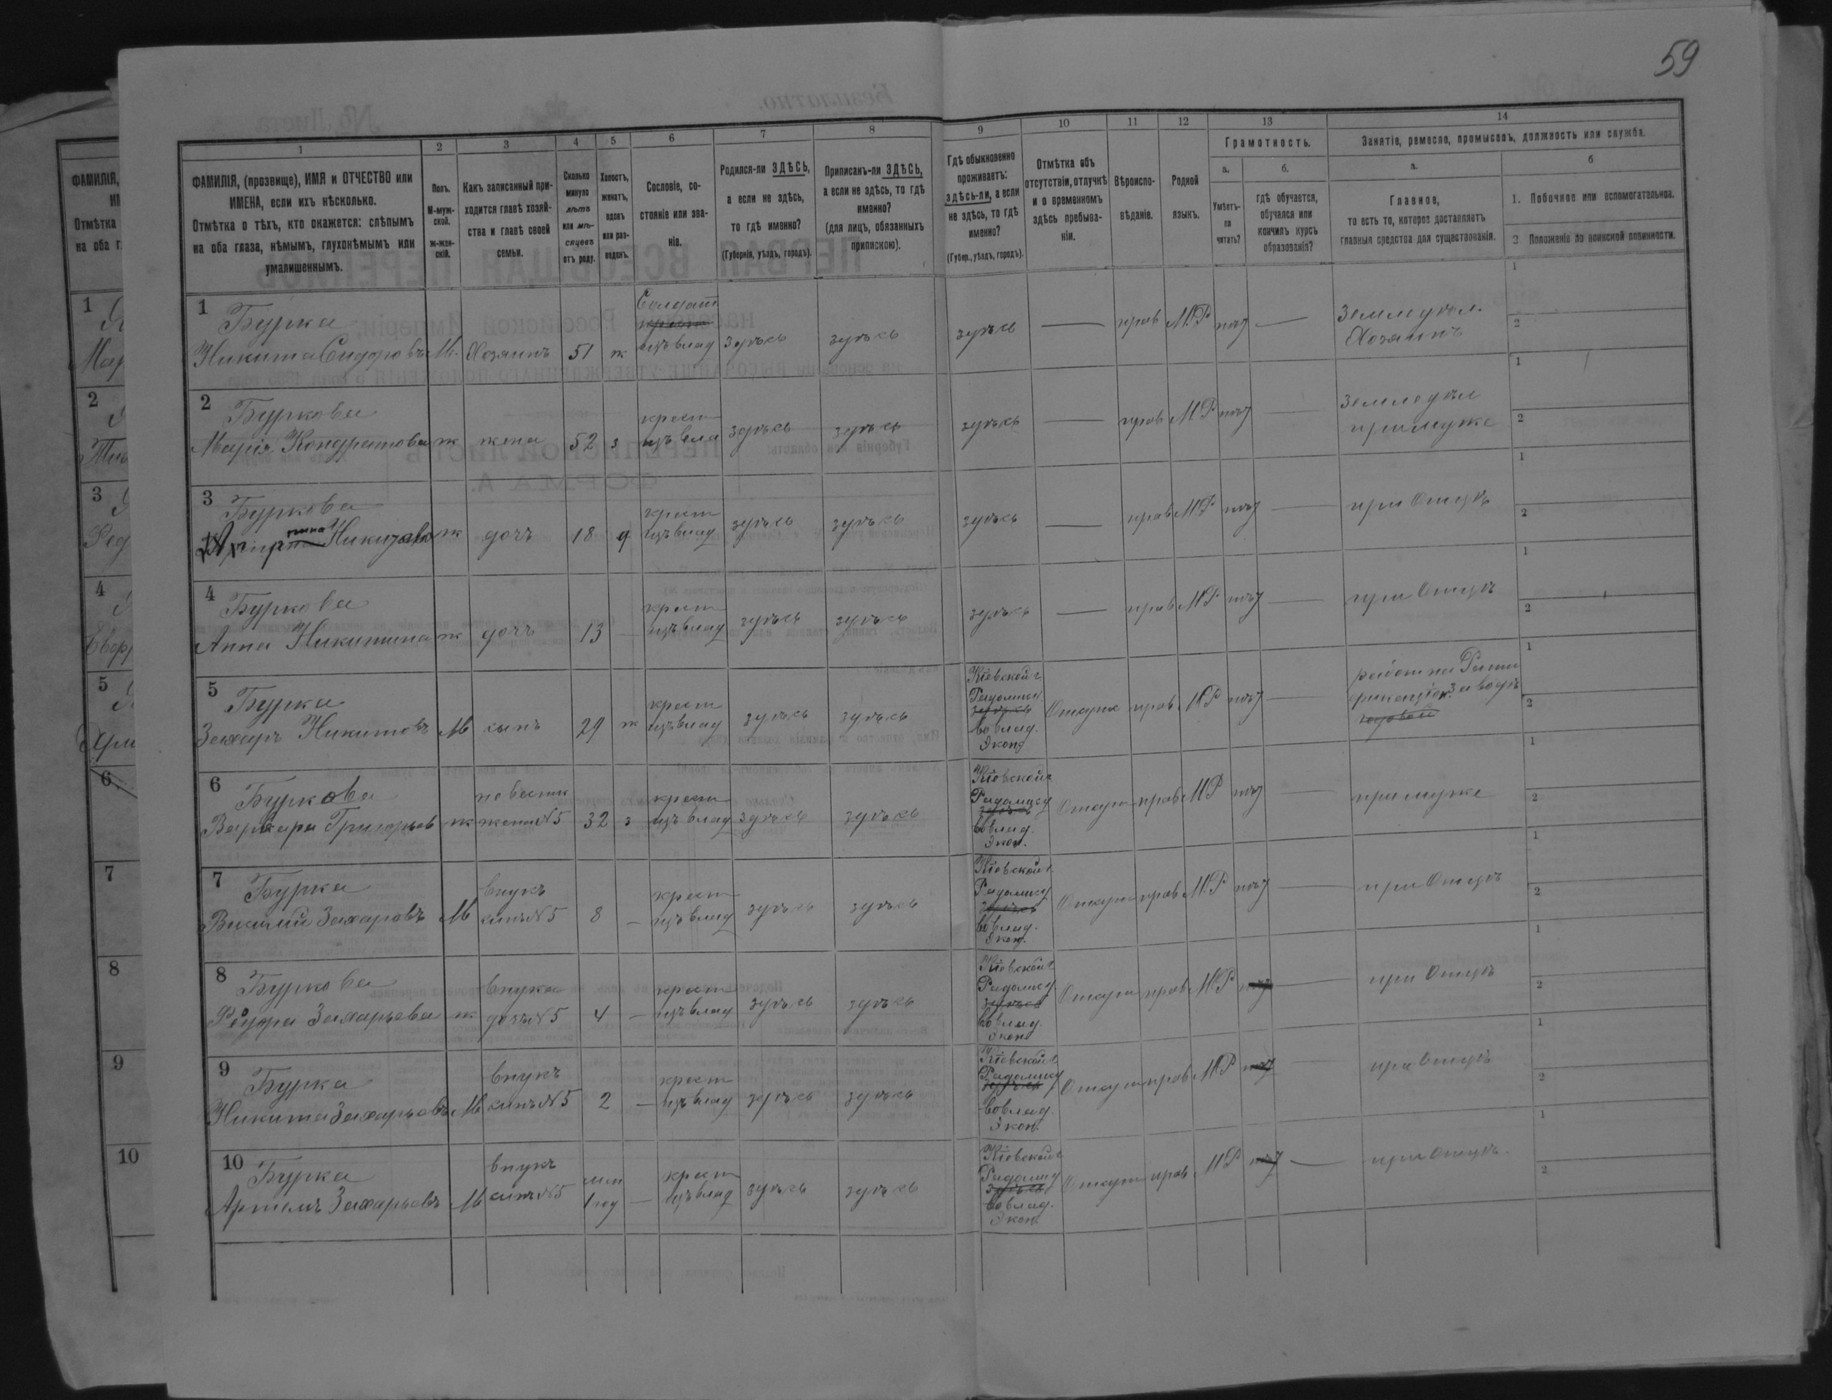 59
1
2
3
4
5
6
7
8
9
10
11
12
13
14
ФАМИЛІЯ, (прозвище), ИМЯ и ОТЧЕСТВО или
ИМЕНА, если ихъ нѣсколько.
Отмѣтка о тѣхъ, кто окажется: слѣпымъ
на оба глаза, нѣмымъ, глухонѣмымъ или
умалишеннымъ.
Полъ.
М-муж-
ской.
ж-жен-
скій.
Какъ записанный при-
ходится главѣ хозяй-
ства и главѣ своей
семьи.
Сколько
минуло
лѣтъ
или мѣ-
сяцевъ
отъ роду.
Холостъ,
женатъ,
вдовъ
или раз-
веденъ.
Сословіе, со-
стояніе или зва-
ніе.
Родился-ли ЗДѢСЬ,
а если не здѣсь,
то гдѣ именно?
(Губернія, уѣздъ, городъ).
Приписанъ-ли ЗДѢСЬ,
а если не здѣсь, то гдѣ
именно?
(для лицъ, обязанныхъ
припискою).
Гдѣ обыкновенно
проживаетъ:
здѣсь-ли, а если
не здѣсь, то гдѣ
именно?
(Губер., уѣздъ, городъ).
Отмѣтка объ
отсутствіи, отлучкѣ
и о временномъ
здѣсь пребыва-
ніи.
Вѣроиспо-
вѣданіе.
Родной
языкъ.
Грамотность.
а.
Умѣетъ-
ли
читать?
б.
гдѣ обучается,
обучался или
кончилъ курсъ
образованія?
Занятіе, ремесло, промыселъ, должность или служба.
а.
Главное,
то есть то, которое доставляетъ
главныя средства для существованія.
б
1. Побочное или вспомогательное.
2. Положеніе по воинской повинности.
1 Бурка
Никита Сидоровъ М. Хозяинъ 51 ж Солдат изъ влад здѣсь здѣсь здѣсь — прав М.Р нѣт — Земледѣл. Хозяинъ
2 Буркова
Марія Кондратова ж жена 52 з крест изъ вла здѣсь здѣсь здѣсь — прав МР нѣт — земледѣл при мужѣ
3 Буркова
Никитова ж дочь 18 д крест изъ влад здѣсь здѣсь здѣсь — прав МР нѣт — при Отцѣ
4 Буркова
Анна Никитина ж дочь 13 — крест изъ влад здѣсь здѣсь здѣсь — прав МР нѣт — при Отцѣ
5 Бурка
Захаръ Никитовъ М сынъ 29 ж крест изъ влад здѣсь здѣсь Кіевской г Радомысл здѣсь во влад. Экон прав МР нѣт — Заводъ
6 Буркова
Варвара Григорьев ж невестка жена №5 32 з крест изъ влад здѣсь здѣсь Кіевской г Радомысл здѣсь во влад. Экон. прав МР нѣт — при мужѣ
7 Бурка
Василій Захаровъ М внукъ сынъ №5 8 — крест изъ влад здѣсь здѣсь Кіевской г. Радомысл здѣсь во влад. Экон. прав МР нѣт — при Отцѣ
8 Буркова
Захарьева ж внука дочь №5 4 — крест изъ влад здѣсь здѣсь Кіевской г Радомысл здѣсь во влад. Экон прав МР нѣт — при Отцѣ
9 Бурка
Никита Захарьевъ М внукъ сынъ №5 2 — крест изъ влад здѣсь здѣсь Кіевской г. Радомысл здѣсь во влад. Экон. прав МР нѣт — при Отцѣ
10 Бурка
Артемъ Захарьевъ М внукъ сынъ №5 1 год — крест изъ влад здѣсь здѣсь Кіевской г Радомысл здѣсь во влад. Экон. прав МР нѣт — при Отцѣ